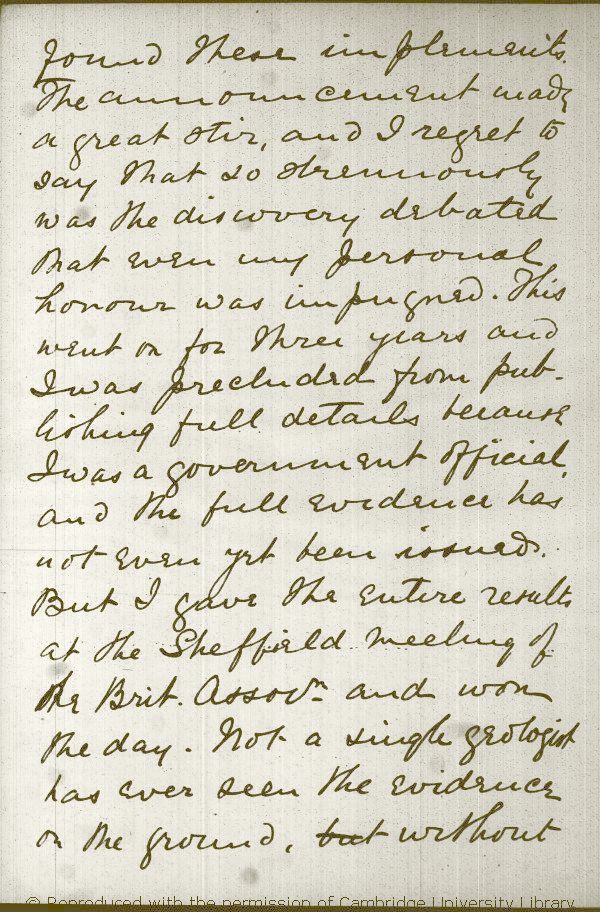 found these implements.
The announcement made
a great stir, and I regret to
say that so strenuously
was the discovery debated
that even my personal
honour was impugned. This
went on for three years and
I was precluded from pub-
lishing full details because
I was a government official,
and the full evidence has
not even yet been issued.
But I gave the entire results
at the Sheffield meeting of
the Brit. Assocn. and won
the day. Not a single geologist
has ever seen the evidence
on the ground, but without
© Reproduced with the permission of Cambridge University Library